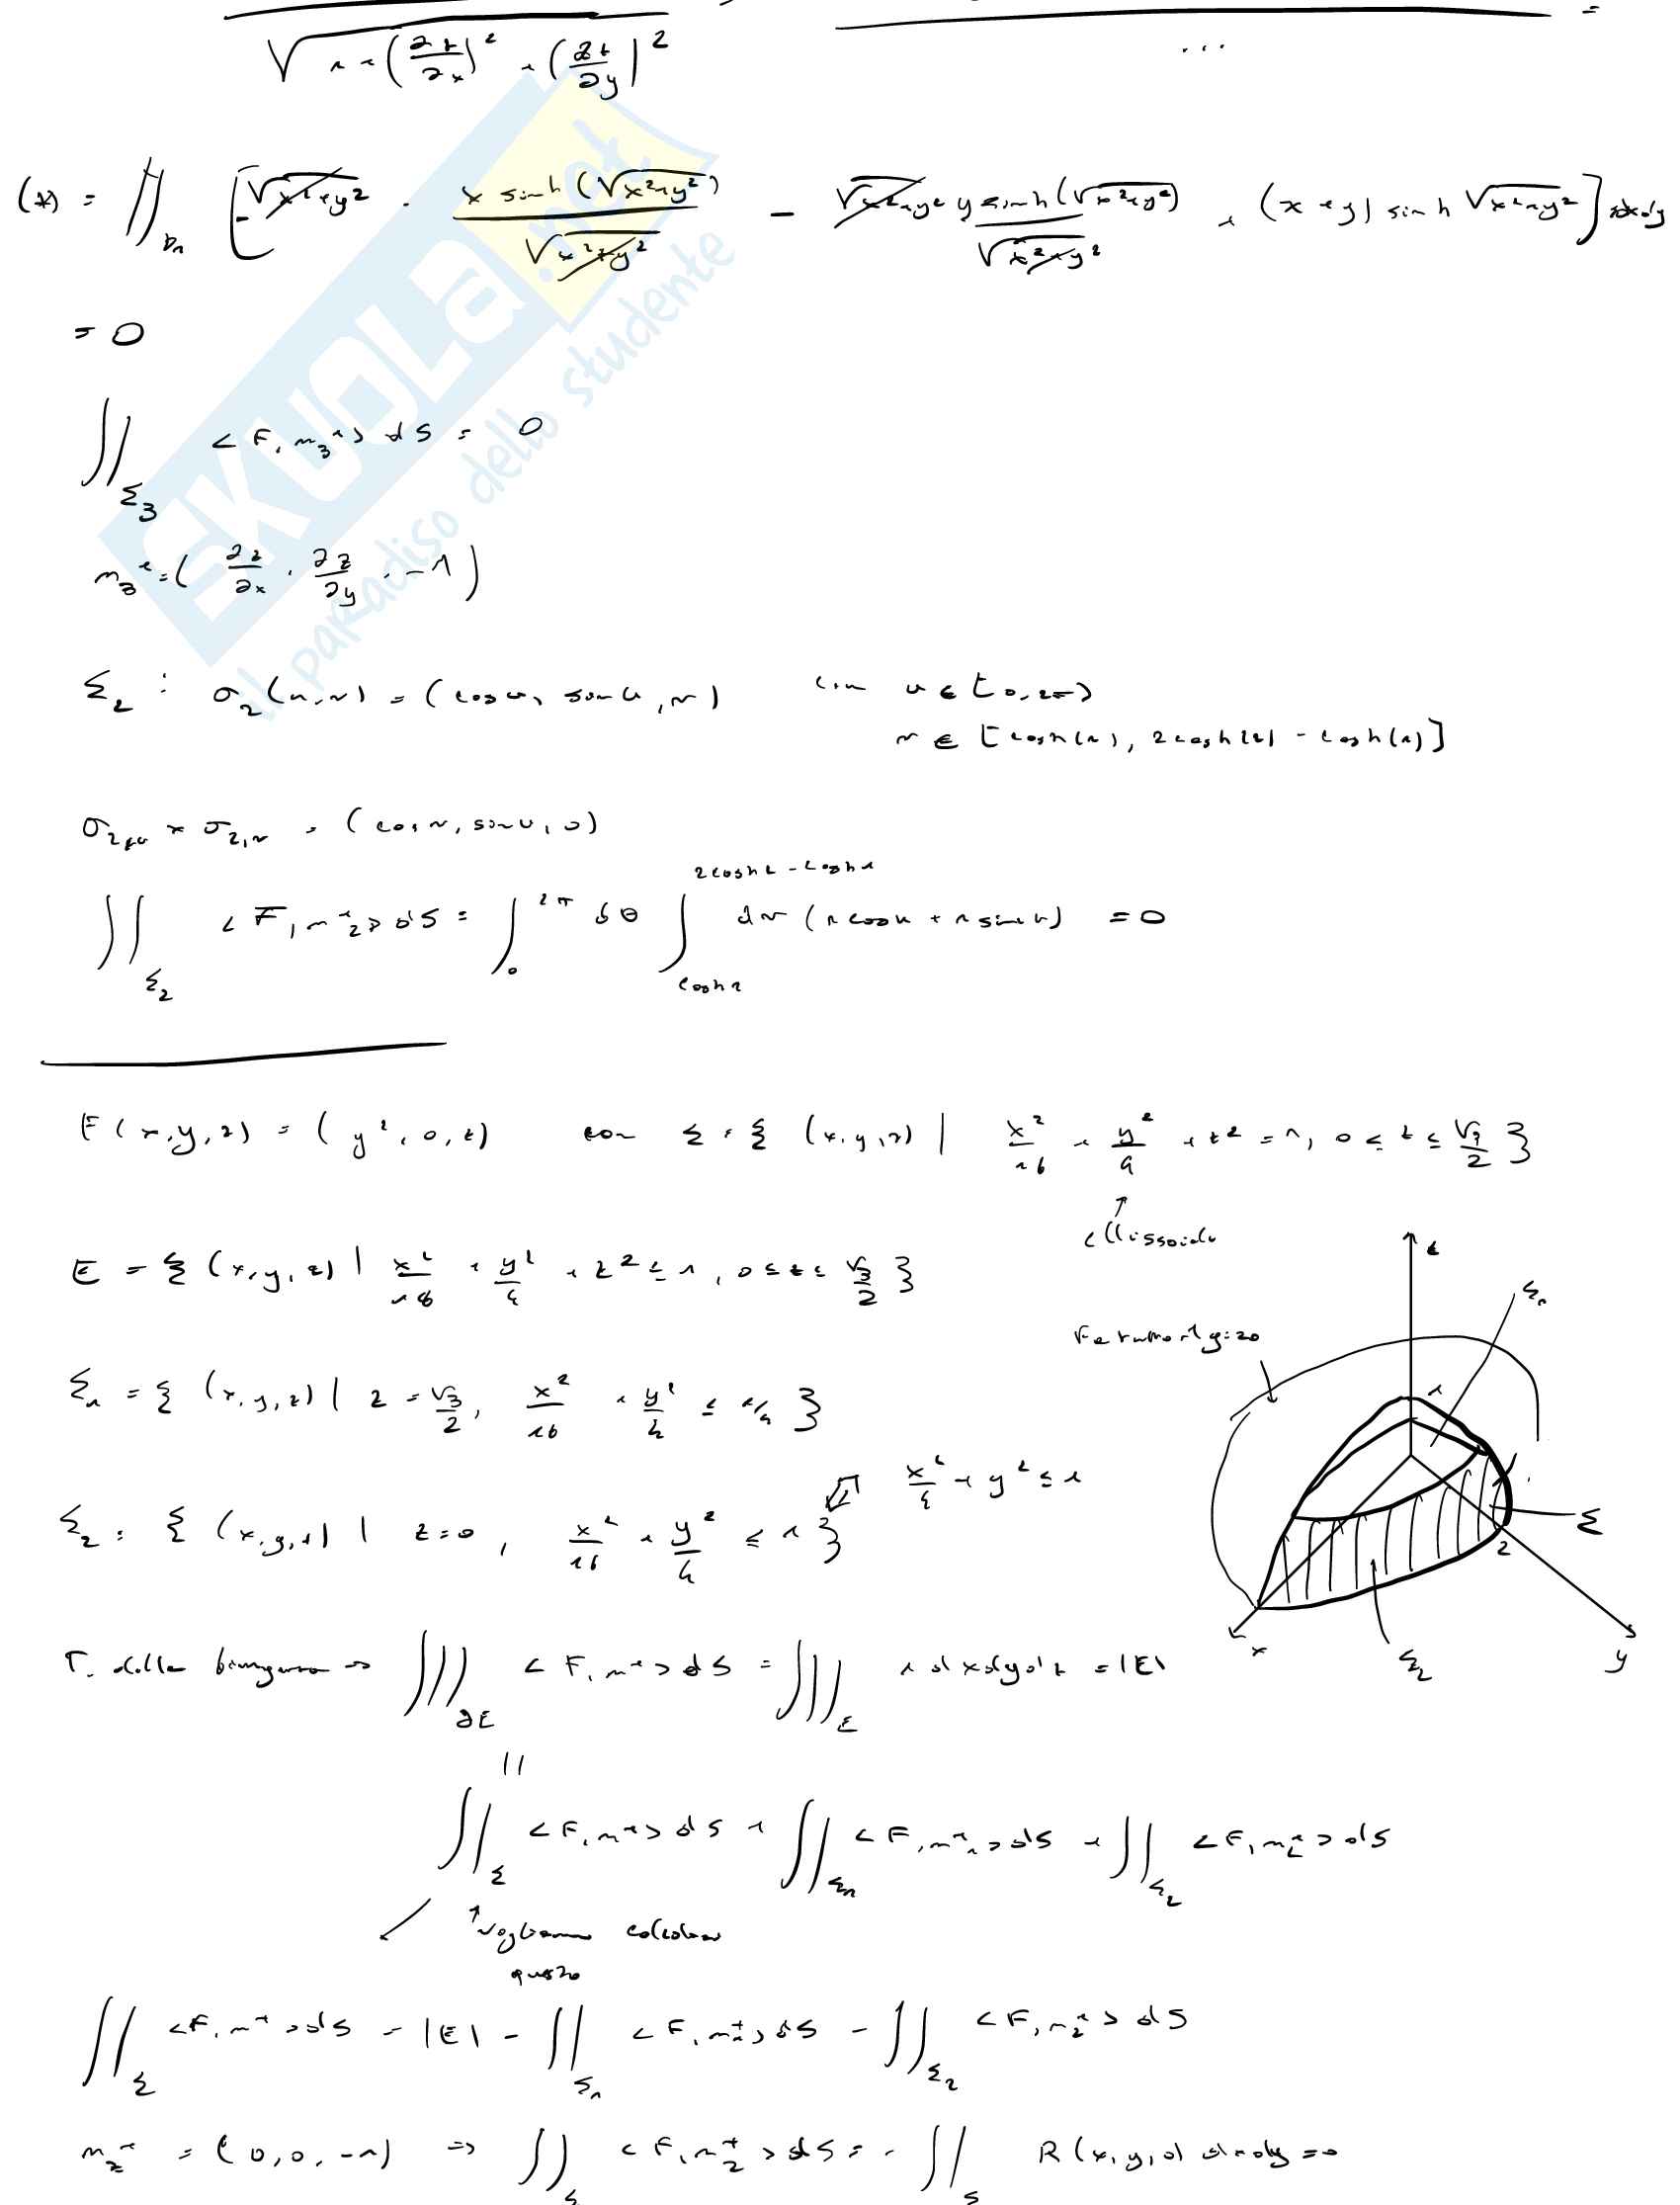 √(1 + (∂z/∂x)² + (∂z/∂y)²) ... =
(*) = ∬_{D₁} [-√(x²+y²) · x sinh(√(x²+y²))/√(x²+y²) - √(x²+y²) y sinh(√(x²+y²))/√(x²+y²) + (x+y) sinh √(x²+y²)] dxdy
= 0
∬_{Σ₃} <F, n₃^e> dS = 0
n₃^e = (∂z/∂x, ∂z/∂y, -1)
Σ₂ : σ₂(u,v) = (cos u, sin u, v) con u ∈ [0, 2π)
v ∈ [cosh(1), 2cosh(1) - cosh(1)]
σ₂,u × σ₂,v = (cos u, sin u, 0)
∬_{Σ₂} <F, n₂^e> dS = ∫₀^{2π} dθ ∫_{cosh1}^{2cosh1 - cosh1} dv (1 cos u + 1 sin u) = 0
F(x,y,z) = (y², 0, z) con Σ = { (x,y,z) | x²/16 + y²/4 + z² = 1, 0 ≤ z ≤ √3/2 }
ellissoide
E = { (x,y,z) | x²/16 + y²/4 + z² ≤ 1, 0 ≤ z ≤ √3/2 }
Σ₁
Σ₁ = { (x,y,z) | z = √3/2, x²/16 + y²/4 ≤ 1/4 }
x²/4 + y² ≤ 1
Σ₂ = { (x,y,z) | z = 0, x²/16 + y²/4 ≤ 1 }
z
1
Σ
2
x
y
Σ₂
T. della divergenza => ∭_{∂E} <F, n^e> dS = ∭_E 1 dxdydz = |E|
||
∬_Σ <F, n^e> dS + ∬_{Σ₁} <F, n₁^e> dS + ∬_{Σ₂} <F, n₂^e> dS
↑ vogliamo calcolare
questo
∬_Σ <F, n^e> dS = |E| - ∬_{Σ₁} <F, n₁^e> dS - ∬_{Σ₂} <F, n₂^e> dS
n₂^e = (0, 0, -1) => ∬ <F, n₂^e> dS = - ∬ R(x,y,0) dxdy = 0
SKUOLA.net
il paradiso dello studente